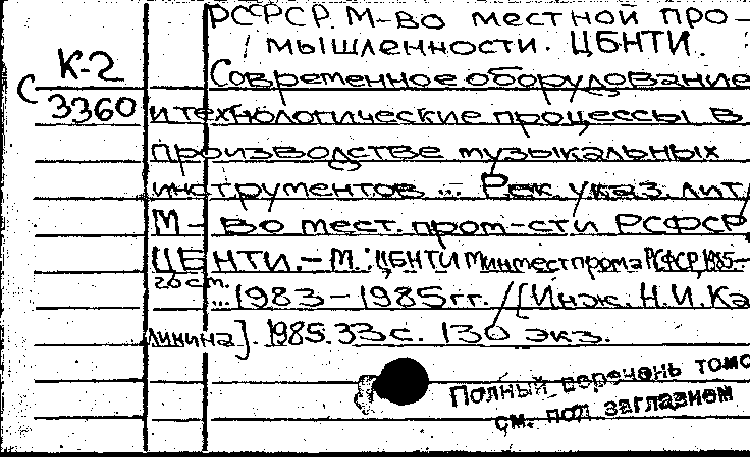 РСФСР. М-во местной про-
мышленности. ЦБНТИ.
К-2
С
3360
Современное оборудование
и технологические процессы в
производстве музыкальных
инструментов ... Рек. указ. лит/
М-во мест. пром-сти РСФСР,
ЦБНТИ. – М.: ЦБНТИ Минместпрома РСФСР, 1985–
... 1983–1985 гг. / [Инж. Н.И. Ка
линина]. 1985. 33 с. 130 экз.
Полный перечень томо
см. под заглавием